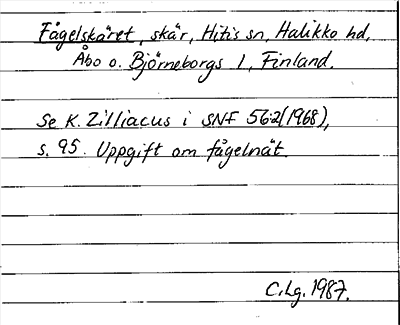 Fågelskäret, skär, Hitis sn, Halikko hd,
Åbo o. Björneborgs l, Finland.
Se K. Zilliacus i SNF 56:2(1968),
s. 95. Uppgift om fågelnät.
C.Lg. 1987.